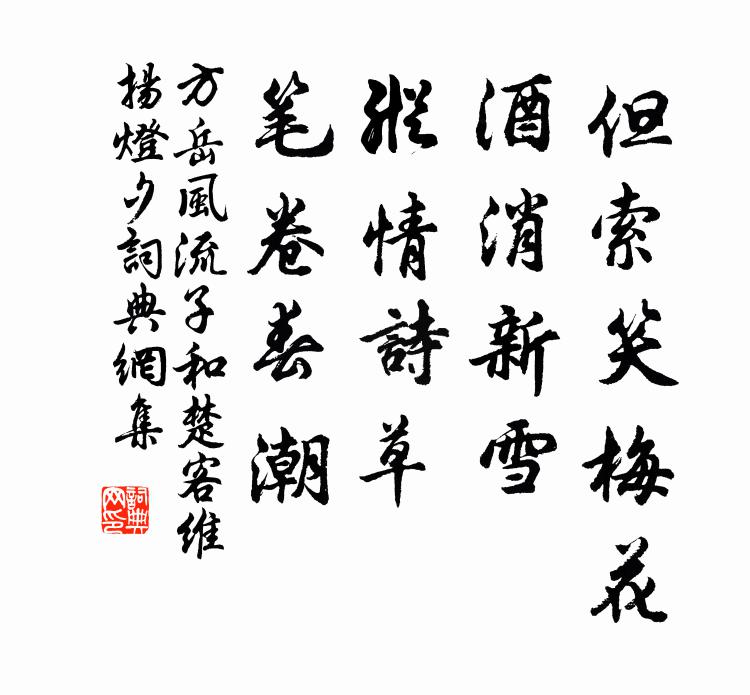 但索笑梅花
酒消新雪
縱情詩草
笔卷春潮
方岳風流子和楚客維
揚燈夕詞典網集
詞典网印